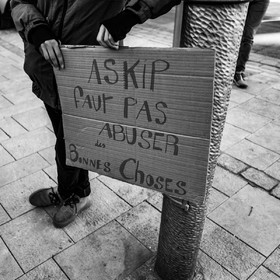 ASKIP
FAUT PAS
ABUSER
des
BONNES CHOSES